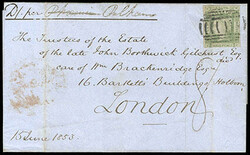 p/ per Pelham
The Trustees of the Estate
of the late John Borthwick Gilchrist Esq
decd
care of Wm Brackenridge Esqr
16 Bartletts Buildings Holborn
London
15 June 1853